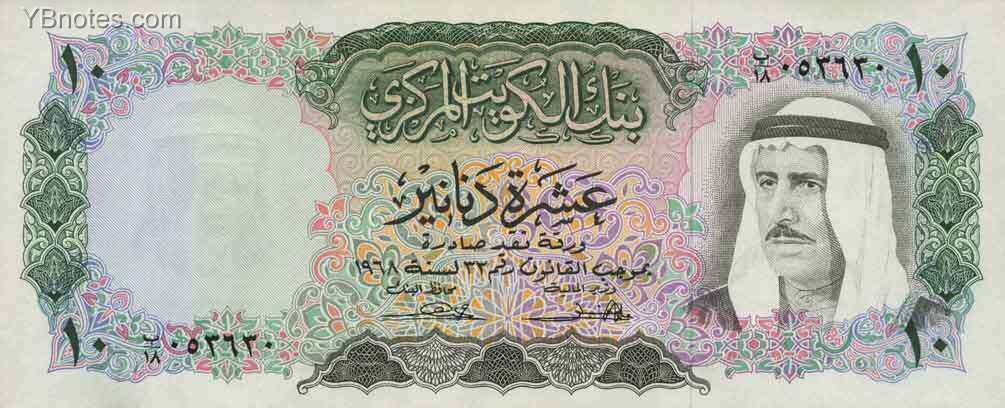 YBnotes.com
١٠
ب/١٨ ٠٥٣٦٣٠
١٠
بنك الكويت المركزي
عشرة دنانير
ورقة نقد صادرة
بموجب القانون رقم ٣٢ لسنة ١٩٦٨
وزير المالية
محافظ البنك
١٠
ب/١٨ ٠٥٣٦٣٠
١٠